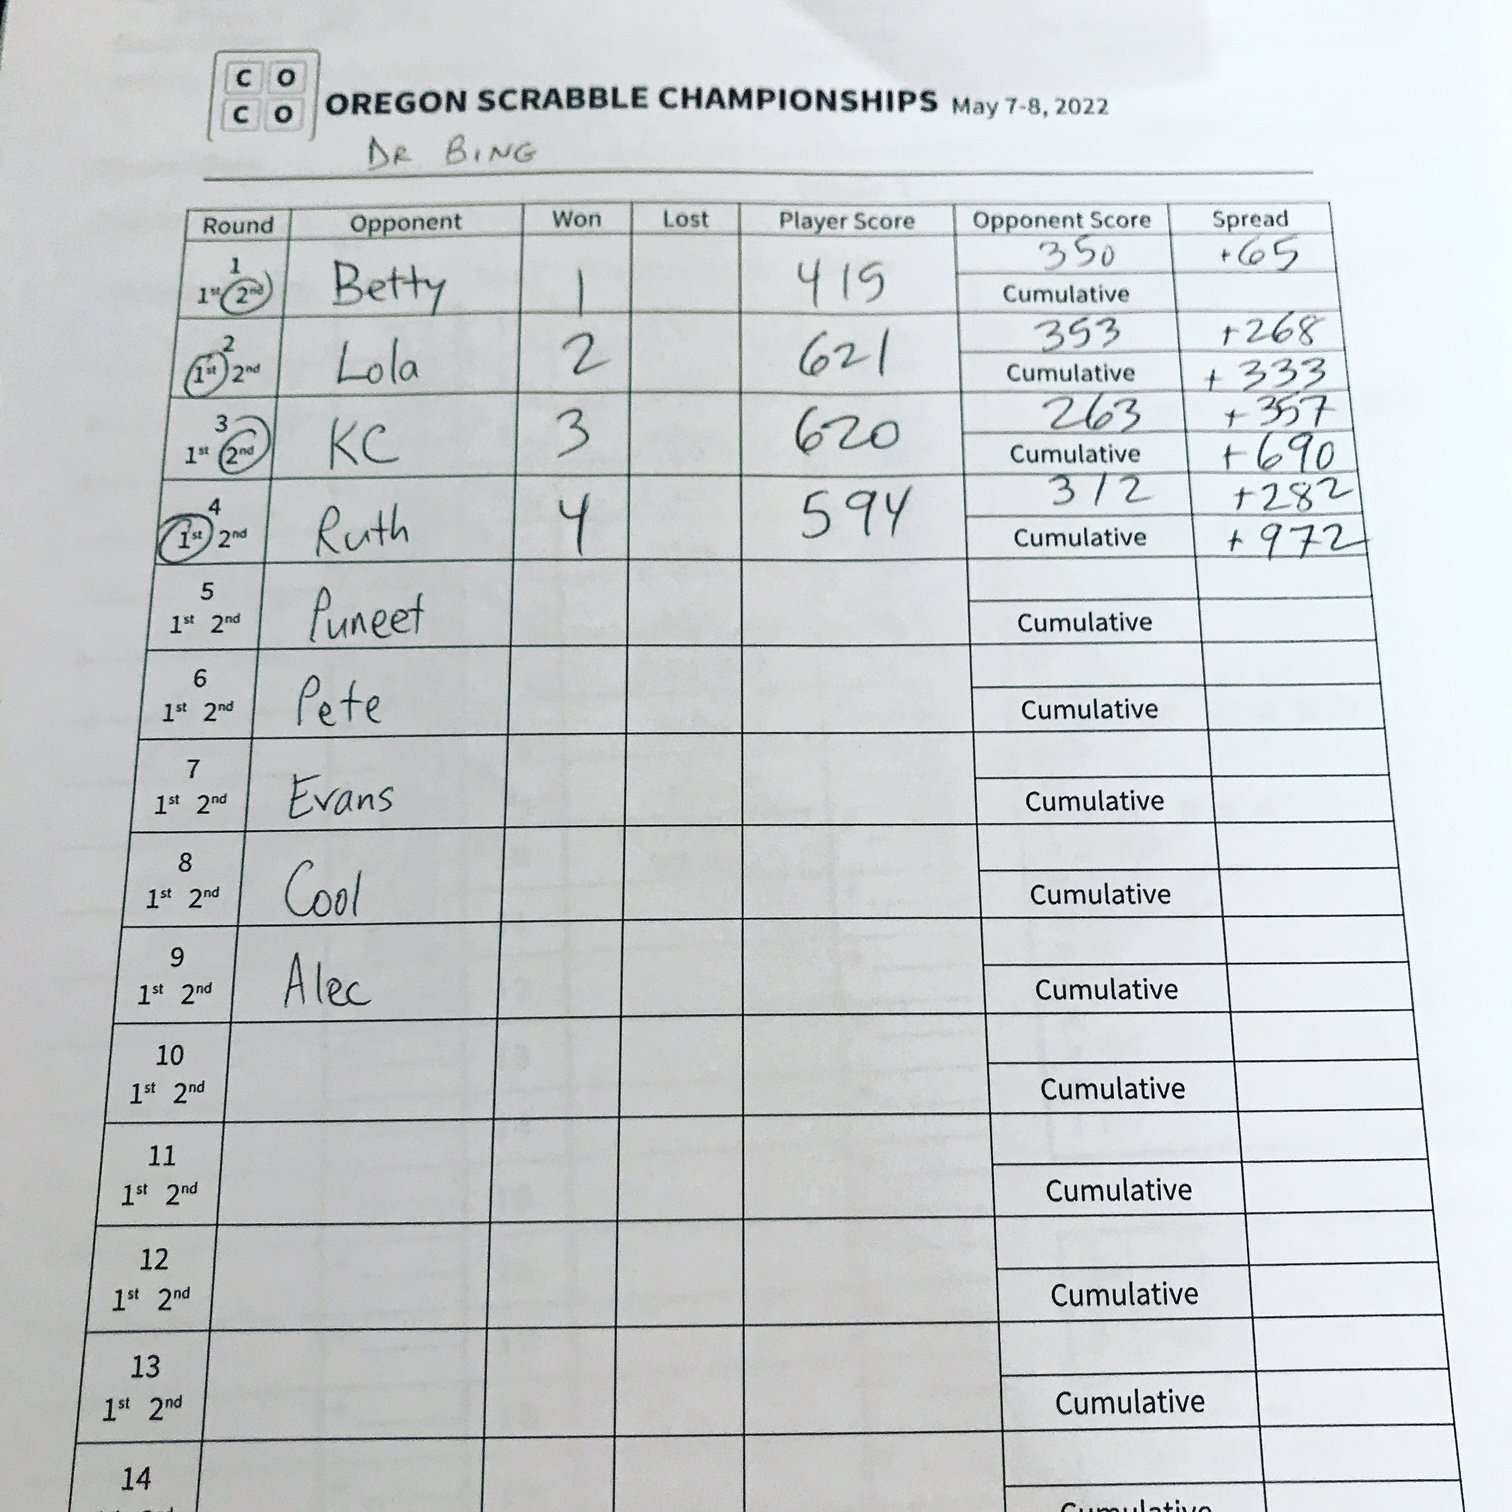 C O
C O
OREGON SCRABBLE CHAMPIONSHIPS May 7-8, 2022
DR BING
Round Opponent Won Lost Player Score Opponent Score Spread
1 350 +65
1st 2nd Betty 1 415 Cumulative
2 353 +268
1st 2nd Lola 2 621 Cumulative +333
3 263 +357
1st 2nd KC 3 620 Cumulative +690
4 312 +282
1st 2nd Ruth 4 594 Cumulative +972
5
1st 2nd Puneet Cumulative
6
1st 2nd Pete Cumulative
7
1st 2nd Evans Cumulative
8
1st 2nd Cool Cumulative
9
1st 2nd Alec Cumulative
10
1st 2nd Cumulative
11
1st 2nd Cumulative
12
1st 2nd Cumulative
13
1st 2nd Cumulative
14
Cumulative